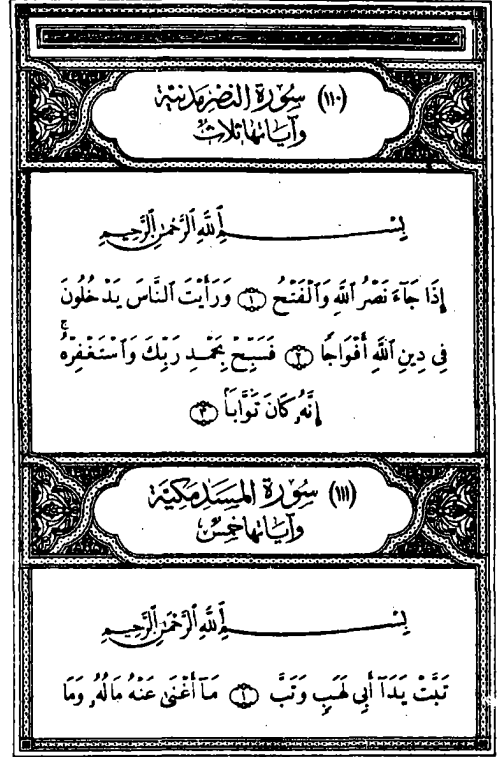 (١١٠) سُورَة النَّصْرِ مَدَنِيَّة
وَآيَاتُهَا ثَلَاث
بِسْمِ ٱللَّهِ ٱلرَّحْمَٰنِ ٱلرَّحِيمِ
إِذَا جَآءَ نَصْرُ ٱللَّهِ وَٱلْفَتْحُ ﴿١﴾ وَرَأَيْتَ ٱلنَّاسَ يَدْخُلُونَ
فِى دِينِ ٱللَّهِ أَفْوَاجًا ﴿٢﴾ فَسَبِّحْ بِحَمْدِ رَبِّكَ وَٱسْتَغْفِرْهُ ۚ
إِنَّهُۥ كَانَ تَوَّابًا ﴿٣﴾
(١١١) سُورَة المَسَد مَكِّيَّة
وَآيَاتُهَا خَمْس
بِسْمِ ٱللَّهِ ٱلرَّحْمَٰنِ ٱلرَّحِيمِ
تَبَّتْ يَدَآ أَبِى لَهَبٍ وَتَبَّ ﴿١﴾ مَآ أَغْنَىٰ عَنْهُ مَالُهُۥ وَمَا